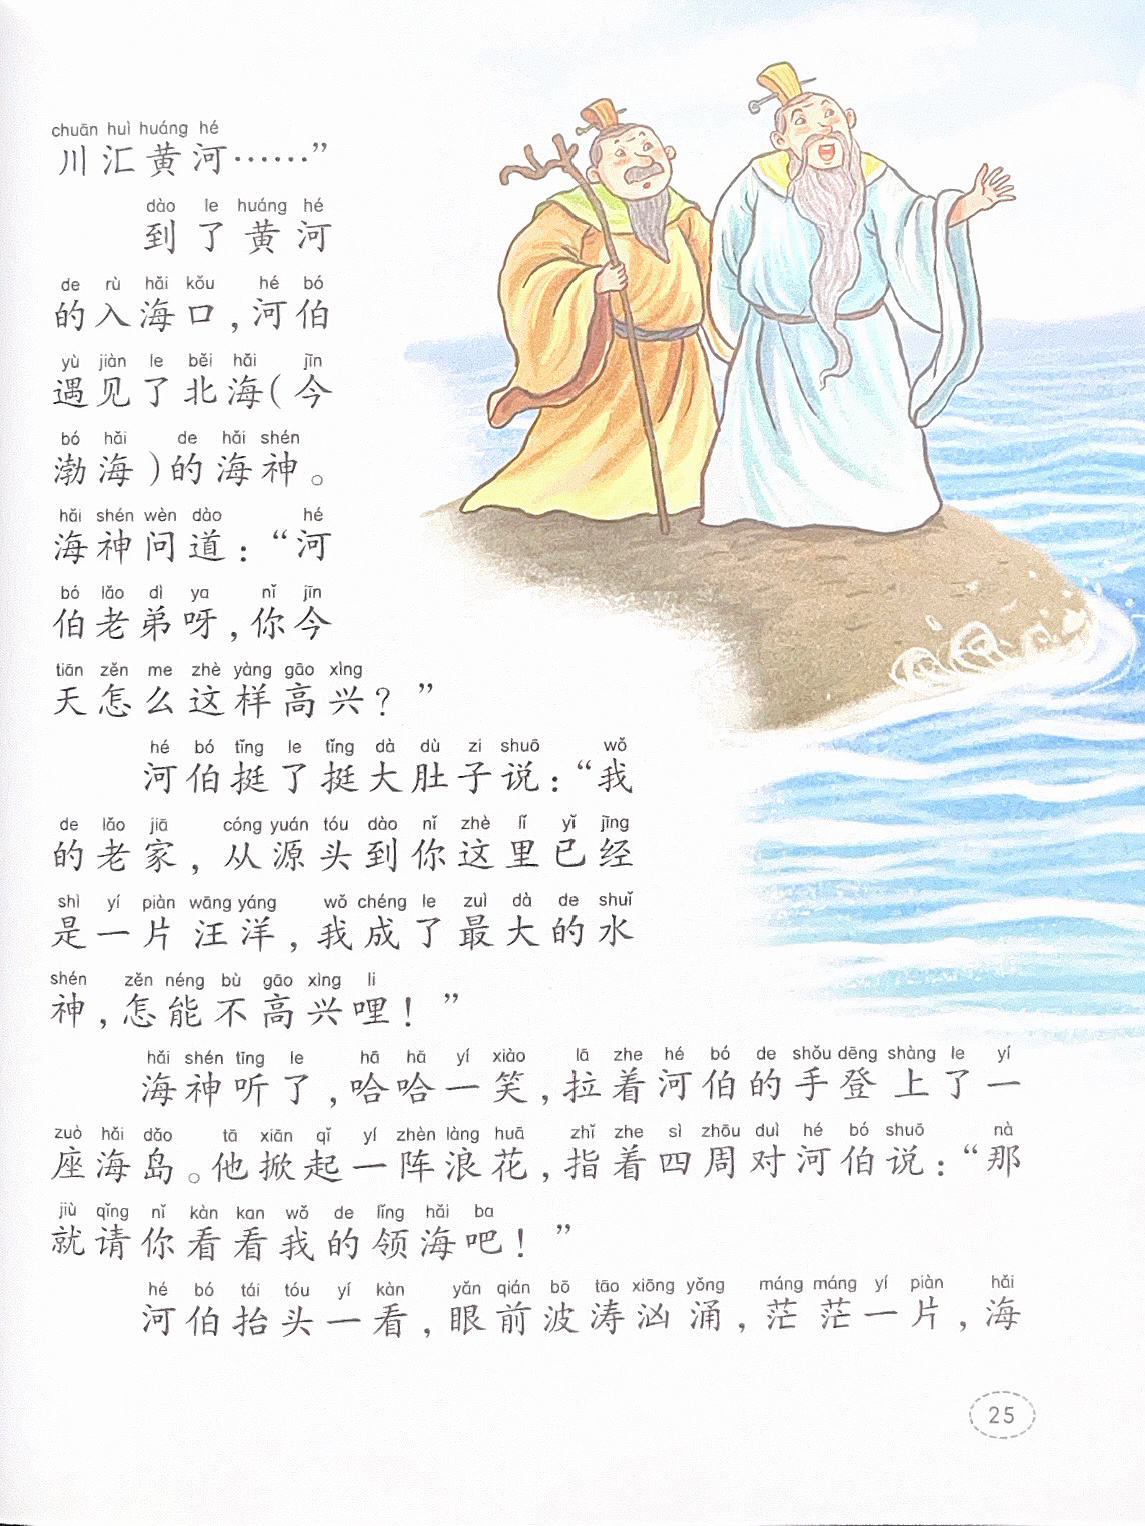 chuān huì huáng hé
川汇黄河……”
dào le huáng hé
到了黄河
de rù hǎi kǒu hé bó
的入海口，河伯
yù jiàn le běi hǎi jīn
遇见了北海(今
bó hǎi de hǎi shén
渤海)的海神。
hǎi shén wèn dào hé
海神问道：“河
bó lǎo dì ya nǐ jīn
伯老弟呀，你今
tiān zěn me zhè yàng gāo xìng
天怎么这样高兴？”
hé bó tǐng le tǐng dà dù zi shuō wǒ
河伯挺了挺大肚子说：“我
de lǎo jiā cóng yuán tóu dào nǐ zhè lǐ yǐ jīng
的老家，从源头到你这里已经
shì yí piàn wāng yáng wǒ chéng le zuì dà de shuǐ
是一片汪洋，我成了最大的水
shén zěn néng bù gāo xìng li
神，怎能不高兴哩！”
hǎi shén tīng le hā hā yí xiào lā zhe hé bó de shǒu dēng shàng le yí
海神听了，哈哈一笑，拉着河伯的手登上了一
zuò hǎi dǎo tā xiān qǐ yí zhèn làng huā zhǐ zhe sì zhōu duì hé bó shuō nà
座海岛。他掀起一阵浪花，指着四周对河伯说：“那
jiù qǐng nǐ kàn kan wǒ de lǐng hǎi ba
就请你看看我的领海吧！”
hé bó tái tóu yí kàn yǎn qián bō tāo xiōng yǒng máng máng yí piàn hǎi
河伯抬头一看，眼前波涛汹涌，茫茫一片，海
25